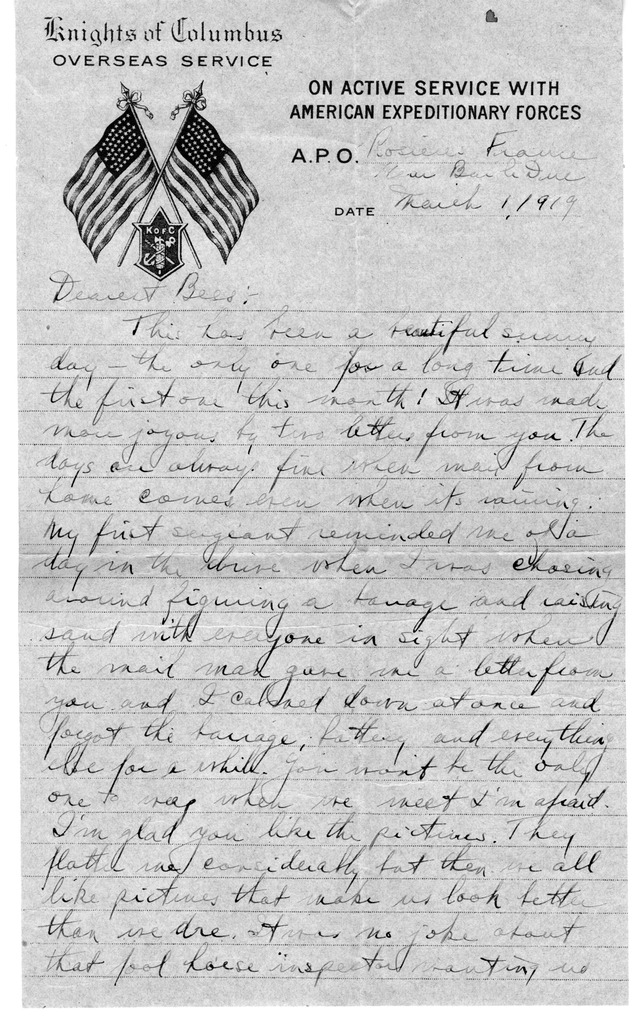 Knights of Columbus
OVERSEAS SERVICE
ON ACTIVE SERVICE WITH
AMERICAN EXPEDITIONARY FORCES
A.P.O. France
near Bar le Duc
DATE March 1, 1919
K of C
Dearest Bess:
This has been a beautiful sunny
day - the only one for a long time and
the first one this month! It was made
more joyous by two letters from you. The
days are always fine when mail from
home comes even when its raining.
My first sergeant reminded me of a
day in the drive when I was chasing
around figuring a barrage and raising
sand with everyone in sight when
the mail man gave me a letter from
you and I calmed down at once and
forgot the barrage, battery and everything
else for a while. You won't be the only
one to when we meet I'm afraid.
I'm glad you like the pictures. They
flatter me considerably but then we all
like pictures that make us look better
than we are. It was no joke about
that fool horse inspector wanting us